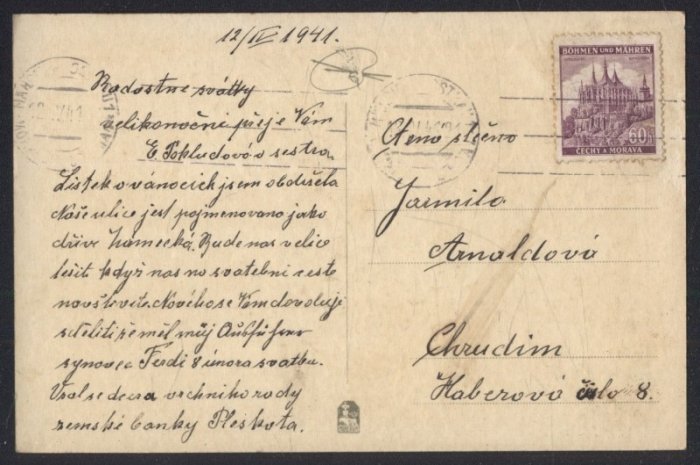 12/IV 1941.
Radostne svátky
velikonoční přeje Vám
E. Pokludová a sestra.
Lístek o vánocich jsem obdržela
Naše ulice jest pojmenovano jako
dříve Zámecká. Bude nas velice
těšit když nas na svatebni cestě
navštivite. Nového se Vám dovoluji
sděliti že měl můj
synovec Ferdi 8 února svatbu.
Vzal se dcera vrchniho rady
zemské banky Pleskota.
BÖHMEN UND MÄHREN
60h
ČECHY A MORAVA
Ctěno slečno
Jarmila
Arnaldová
Chrudim
Haberova číslo 8.